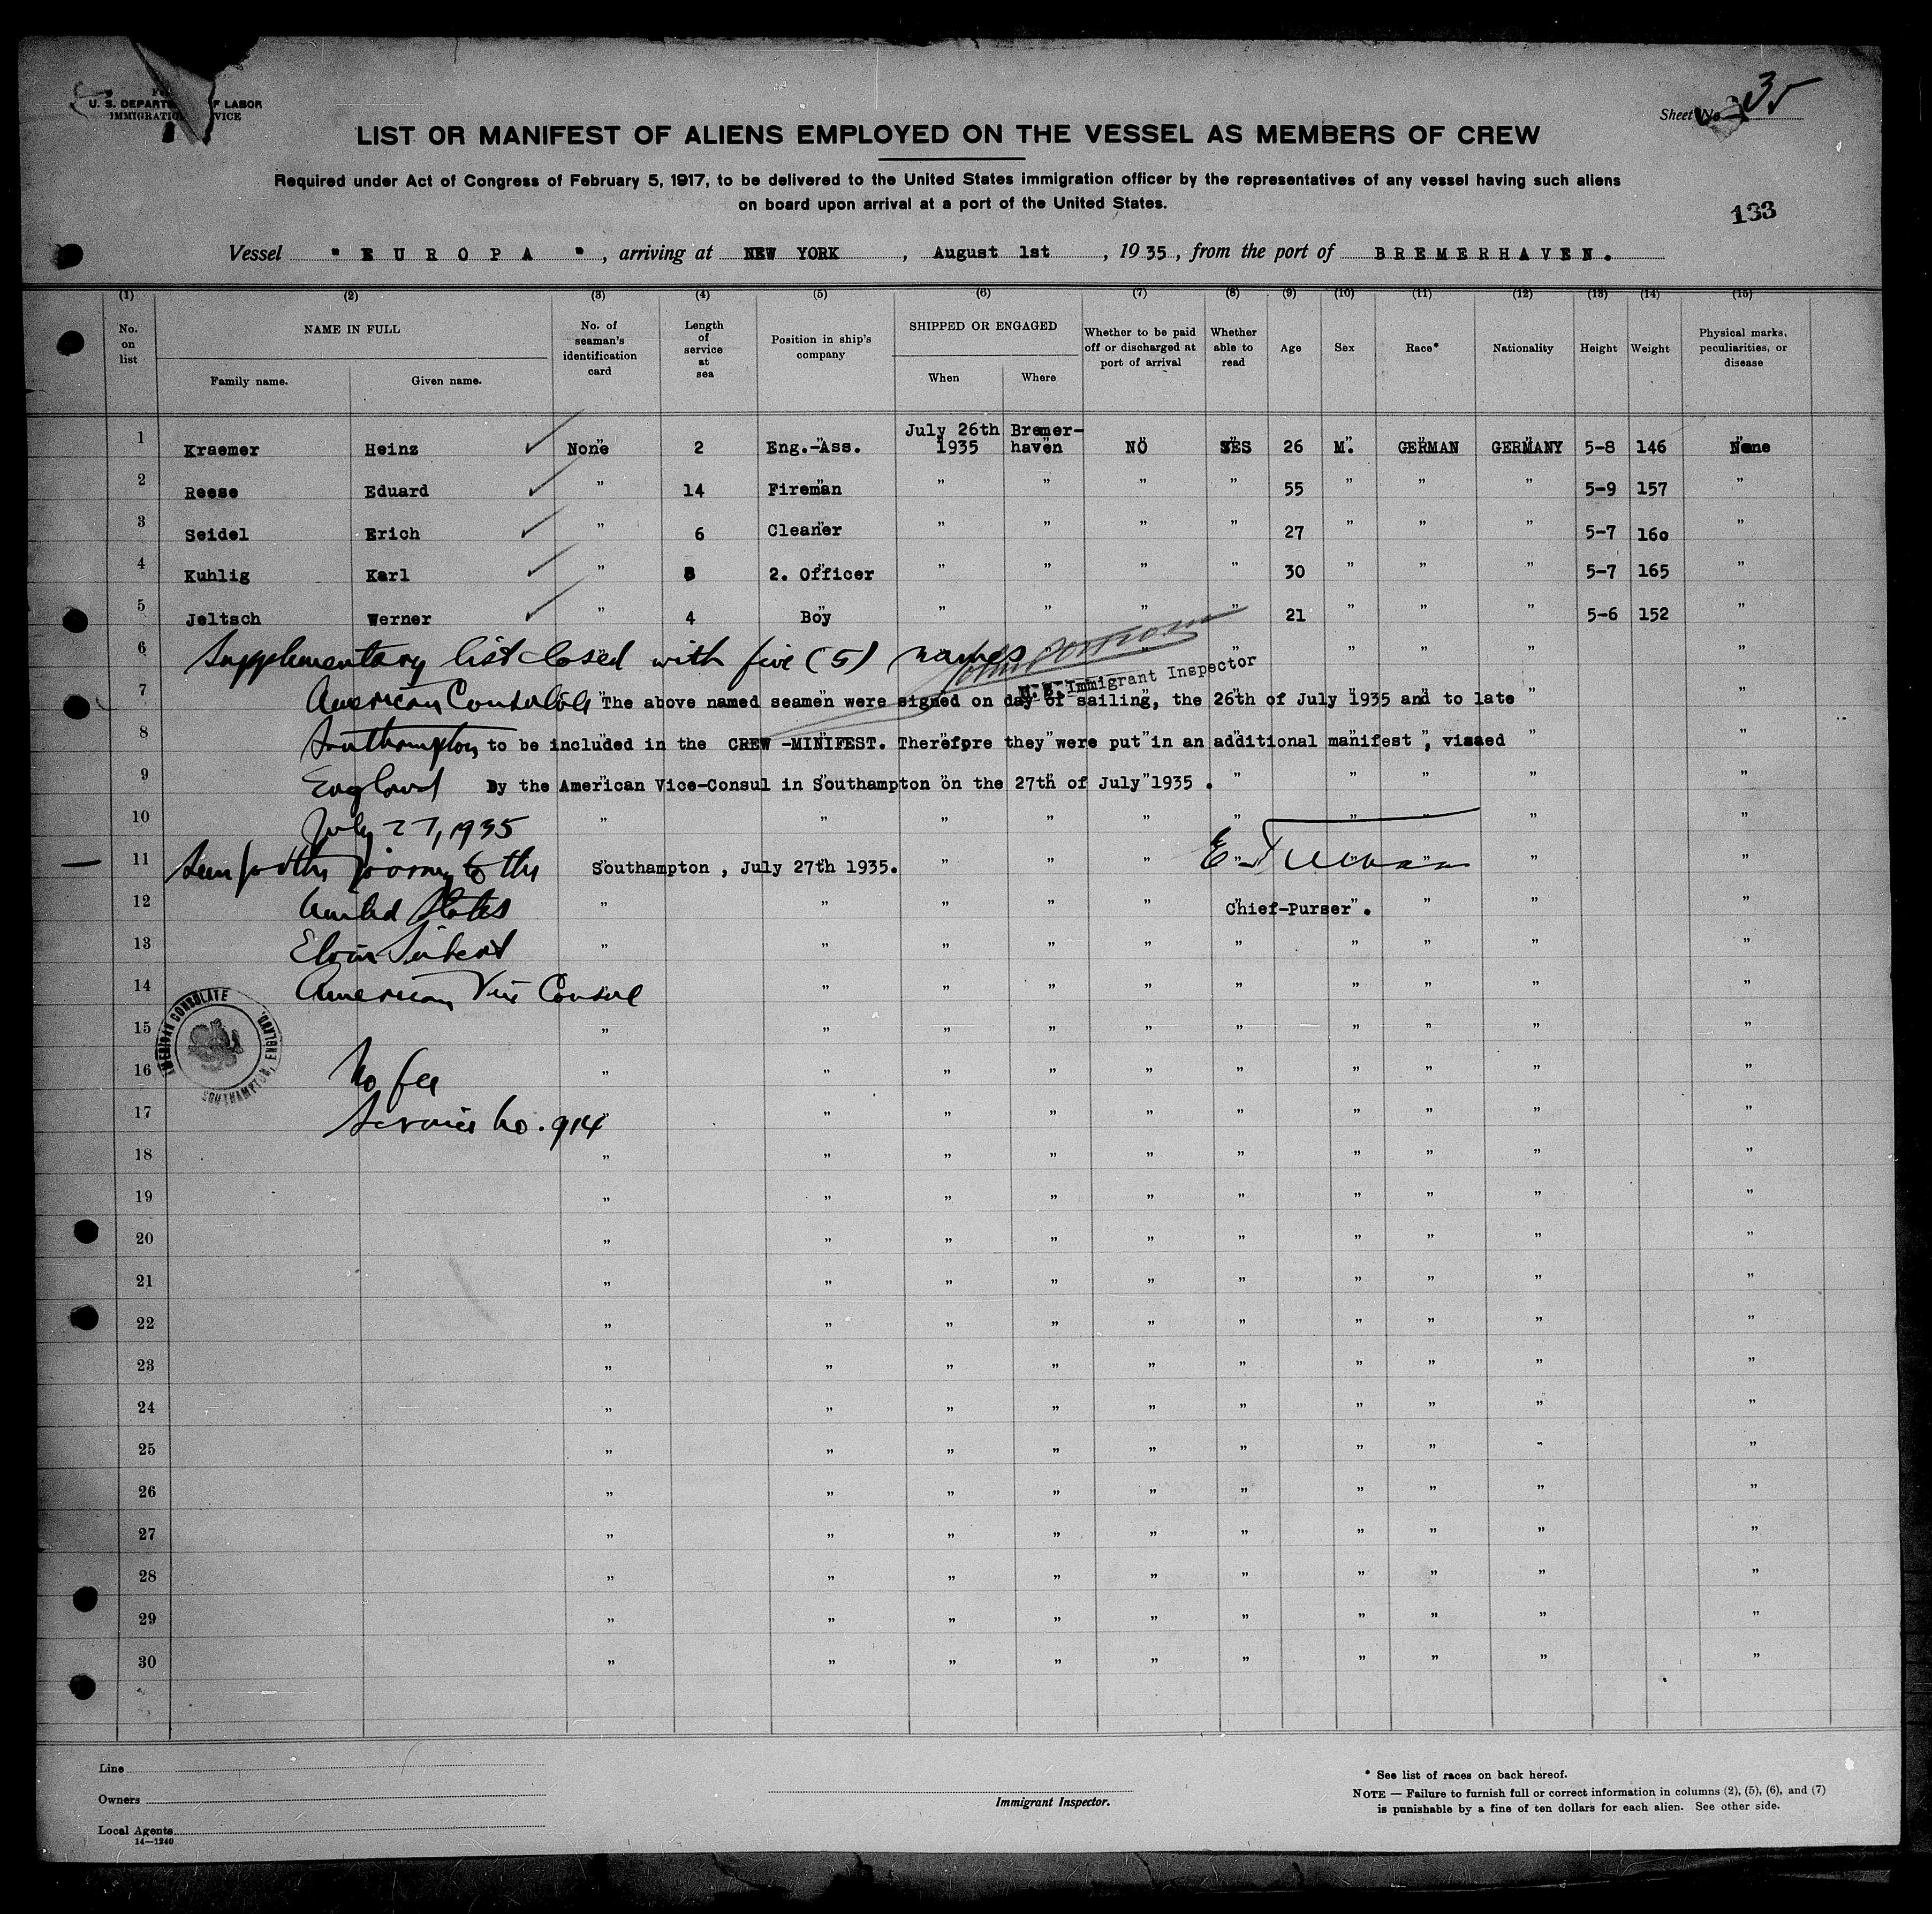 U. S. DEPARTMENT OF LABOR
IMMIGRATION SERVICE
Sheet No. 35
LIST OR MANIFEST OF ALIENS EMPLOYED ON THE VESSEL AS MEMBERS OF CREW
Required under Act of Congress of February 5, 1917, to be delivered to the United States immigration officer by the representatives of any vessel having such aliens
on board upon arrival at a port of the United States.
133
Vessel " E U R O P A ", arriving at NEW YORK, August 1st, 1935, from the port of BREMERHAVEN.
(1) (2) (3) (4) (5) (6) (7) (8) (9) (10) (11) (12) (13) (14) (15)
No. on list NAME IN FULL Family name. Given name. No. of seaman's identification card Length of service at sea Position in ship's company SHIPPED OR ENGAGED When Where Whether to be paid off or discharged at port of arrival Whether able to read Age Sex Race* Nationality Height Weight Physical marks, peculiarities, or disease
1 Kraemer Heinz None 2 Eng.-Ass. July 26th 1935 Bremer-haven NO YES 26 M. GERMAN GERMANY 5-8 146 None
2 Reese Eduard " 14 Fireman " " " " 55 " " " 5-9 157 "
3 Seidel Erich " 6 Cleaner " " " " 27 " " " 5-7 160 "
4 Kuhlig Karl " 8 2. Officer " " " " 30 " " " 5-7 165 "
5 Jeltsch Werner " 4 Boy " " " " 21 " " " 5-6 152 "
6 Supplementary list closed with five (5) names
U. S. Immigrant Inspector
7 American Consulate The above named seamen were signed on day of sailing, the 26th of July 1935 and to late
8 Southampton to be included in the CREW -MINIFEST. Therefore they were put in an additional manifest , visaed
9 England By the American Vice-Consul in Southampton on the 27th of July 1935 .
10 July 27, 1935
11 Seen for the journey to the Southampton , July 27th 1935.
12 United States Chief-Purser .
13
14 American Vice Consul
15
AMERICAN CONSULATE SOUTHAMPTON, ENGLAND.
16 No fee
17 Service No. 914
18
19
20
21
22
23
24
25
26
27
28
29
30
Line
Owners
Local Agents
14—1240
Immigrant Inspector.
* See list of races on back hereof.
NOTE — Failure to furnish full or correct information in columns (2), (5), (6), and (7)
is punishable by a fine of ten dollars for each alien. See other side.